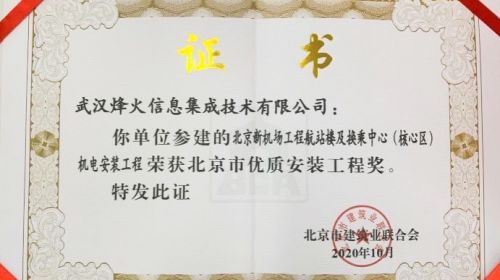 证 书
武汉烽火信息集成技术有限公司：
你单位参建的北京新机场工程航站楼及换乘中心（核心区）
机电安装工程荣获北京市优质安装工程奖。
特发此证
北京市建筑业联合会
2020年10月